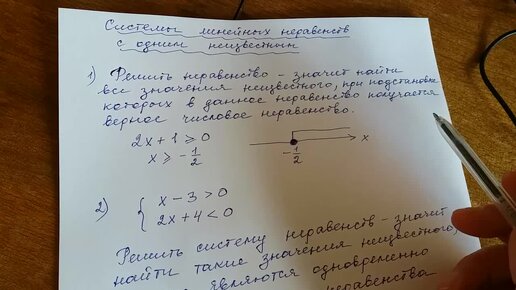 Системы линейных неравенств
с одним неизвестным
1) Решить неравенство – значит найти
все значения неизвестного, при подстановке
которых в данное неравенство получается
верное числовое неравенство.
2x + 1 ⩾ 0
x ⩾ -1/2
-1/2 x
2) { x - 3 > 0
2x + 4 < 0
Решить систему неравенств – значит
найти такие значения неизвестного,
являются одновременно
неравенства